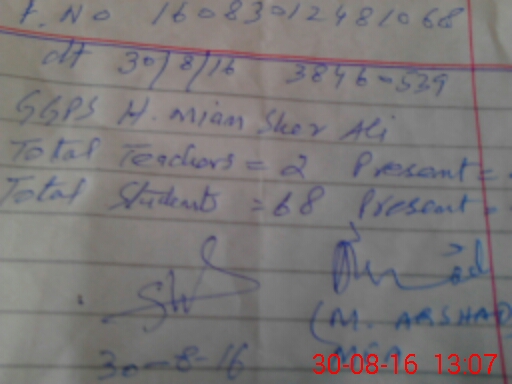 F. No 16083012481068
dt 30/8/16 3846-539
GGPS H. Mian Sher Ali
Total Teachers = 2 Present =
Total Students = 68 Present =
(M. ARSHAD
30-8-16 MEA
30-08-16 13:07